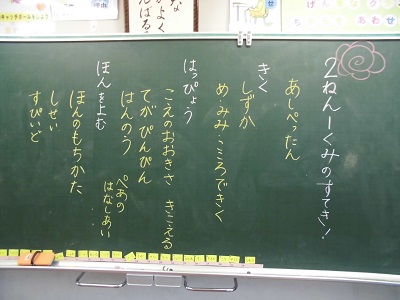 2ねん一くみのすてき!
あしぺったん
きく
しずか
め・みみ・こころできく
はっぴょう
こえのおおきさ きこえる
てが ぴんぴん
はんのう
ぺあの
はなしあい
ほんを よむ
ほんのもちかた
しせい
すぴいど